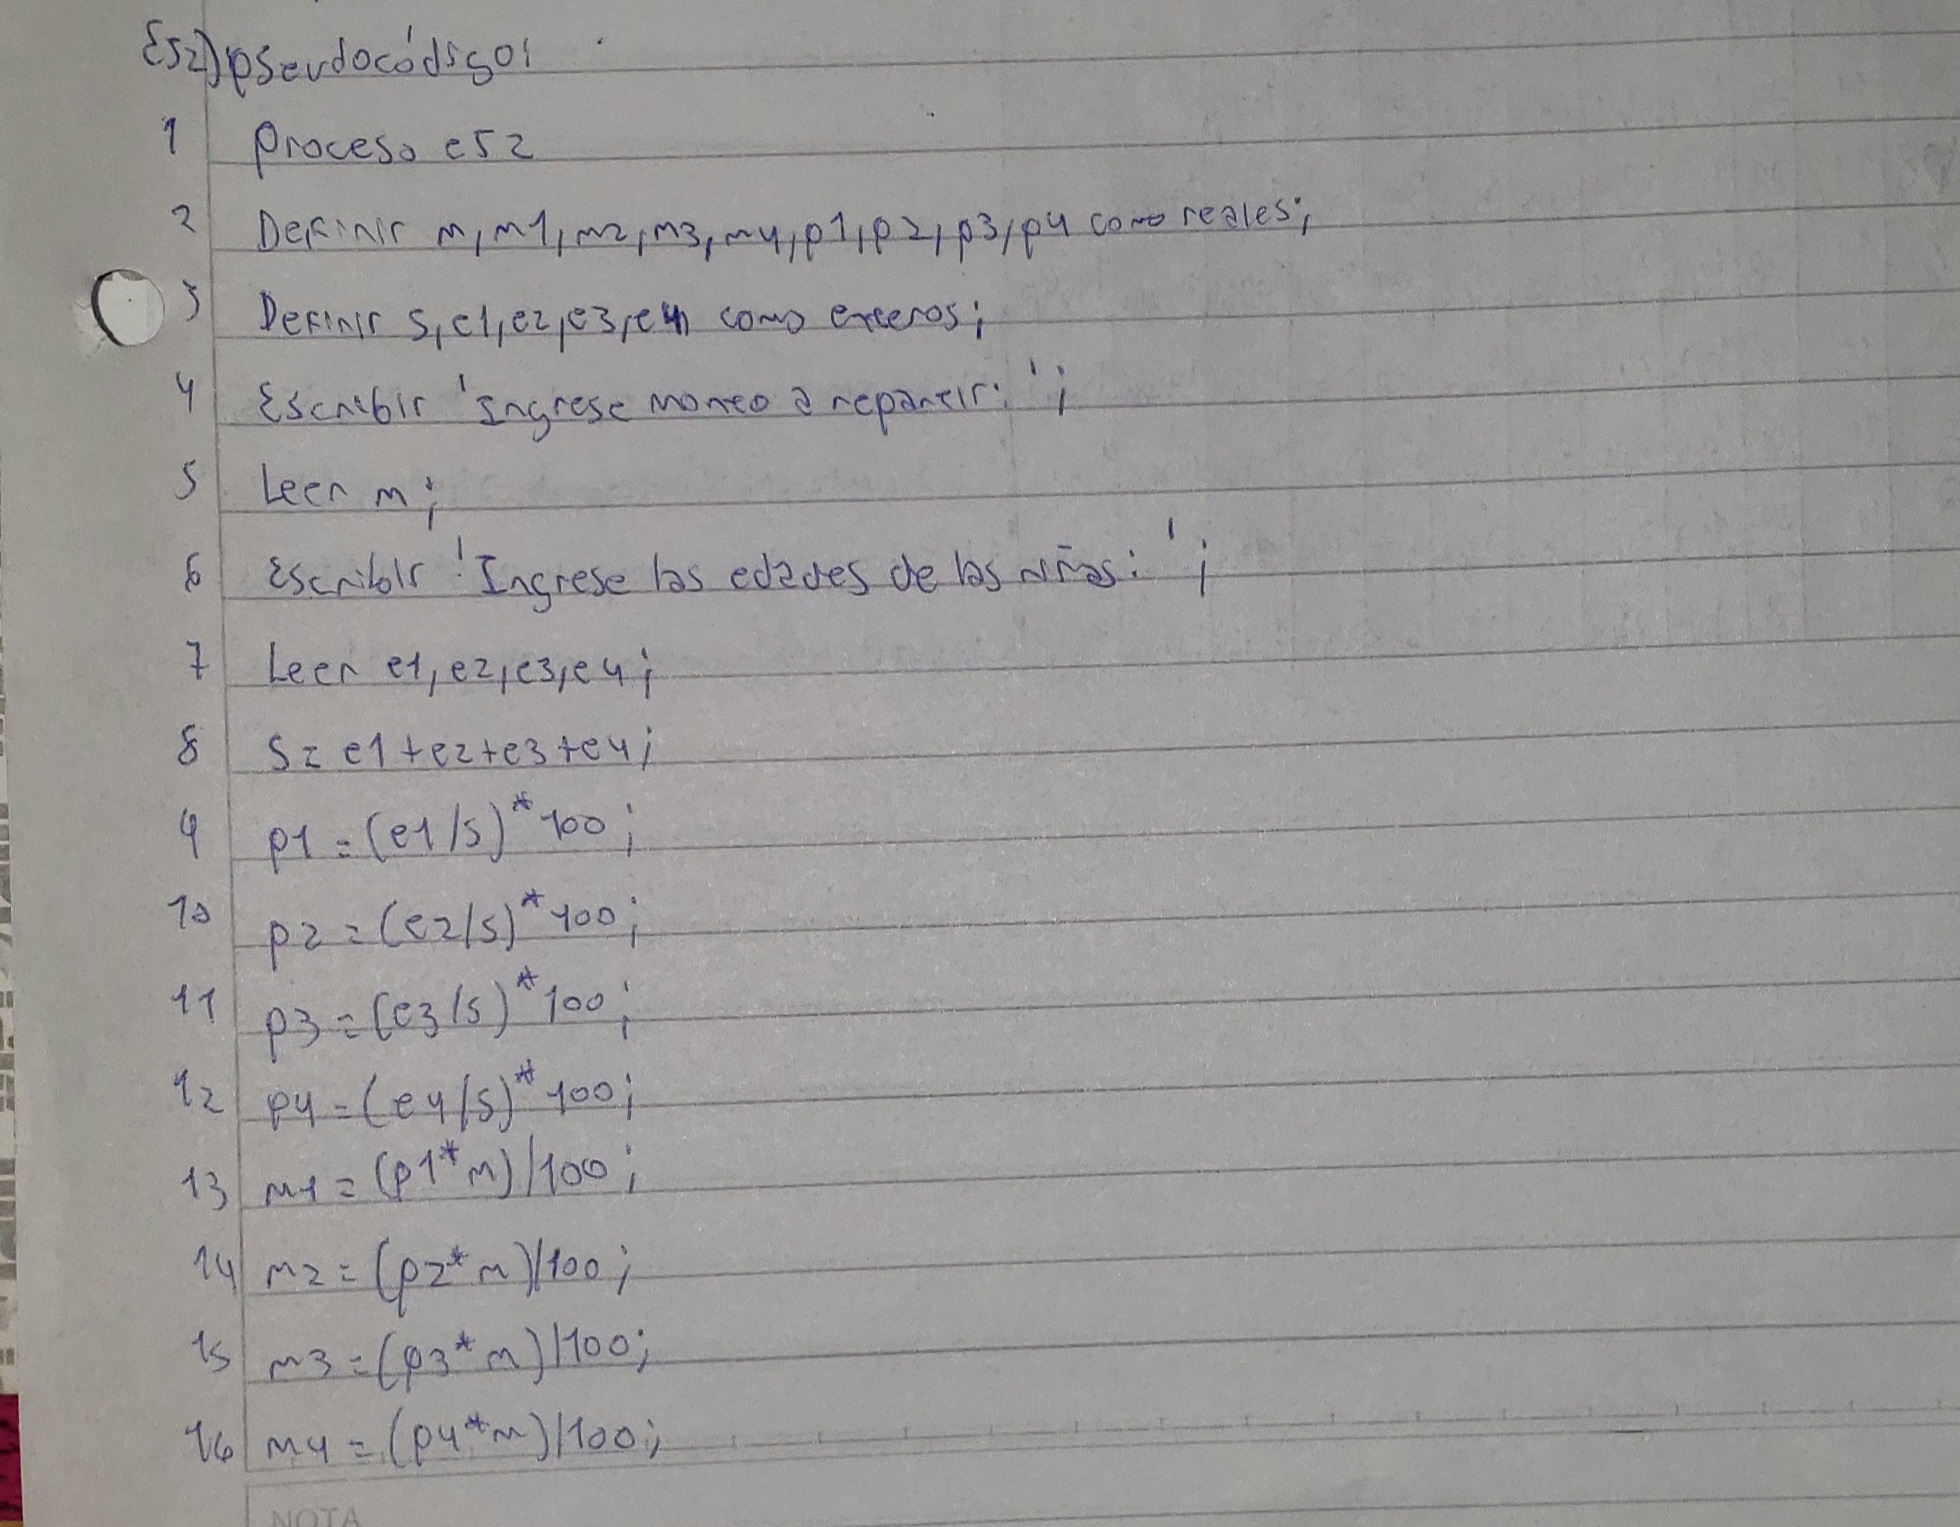 E52) pseudocódigo:
1 Proceso e52
2 Definir m, m1, m2, m3, m4, p1, p2, p3, p4 como reales;
3 Definir s, e1, e2, e3, e4 como enteros;
4 Escribir 'Ingrese monto a repartir: ';
5 Leer m;
6 Escribir 'Ingrese las edades de las niñas: ';
7 Leer e1, e2, e3, e4;
8 s = e1+e2+e3+e4;
9 p1 = (e1/s)*100;
10 p2 = (e2/s)*100;
11 p3 = (e3/s)*100;
12 p4 = (e4/s)*100;
13 m1 = (p1*m)/100;
14 m2 = (p2*m)/100;
15 m3 = (p3*m)/100;
16 m4 = (p4*m)/100;
NOTA